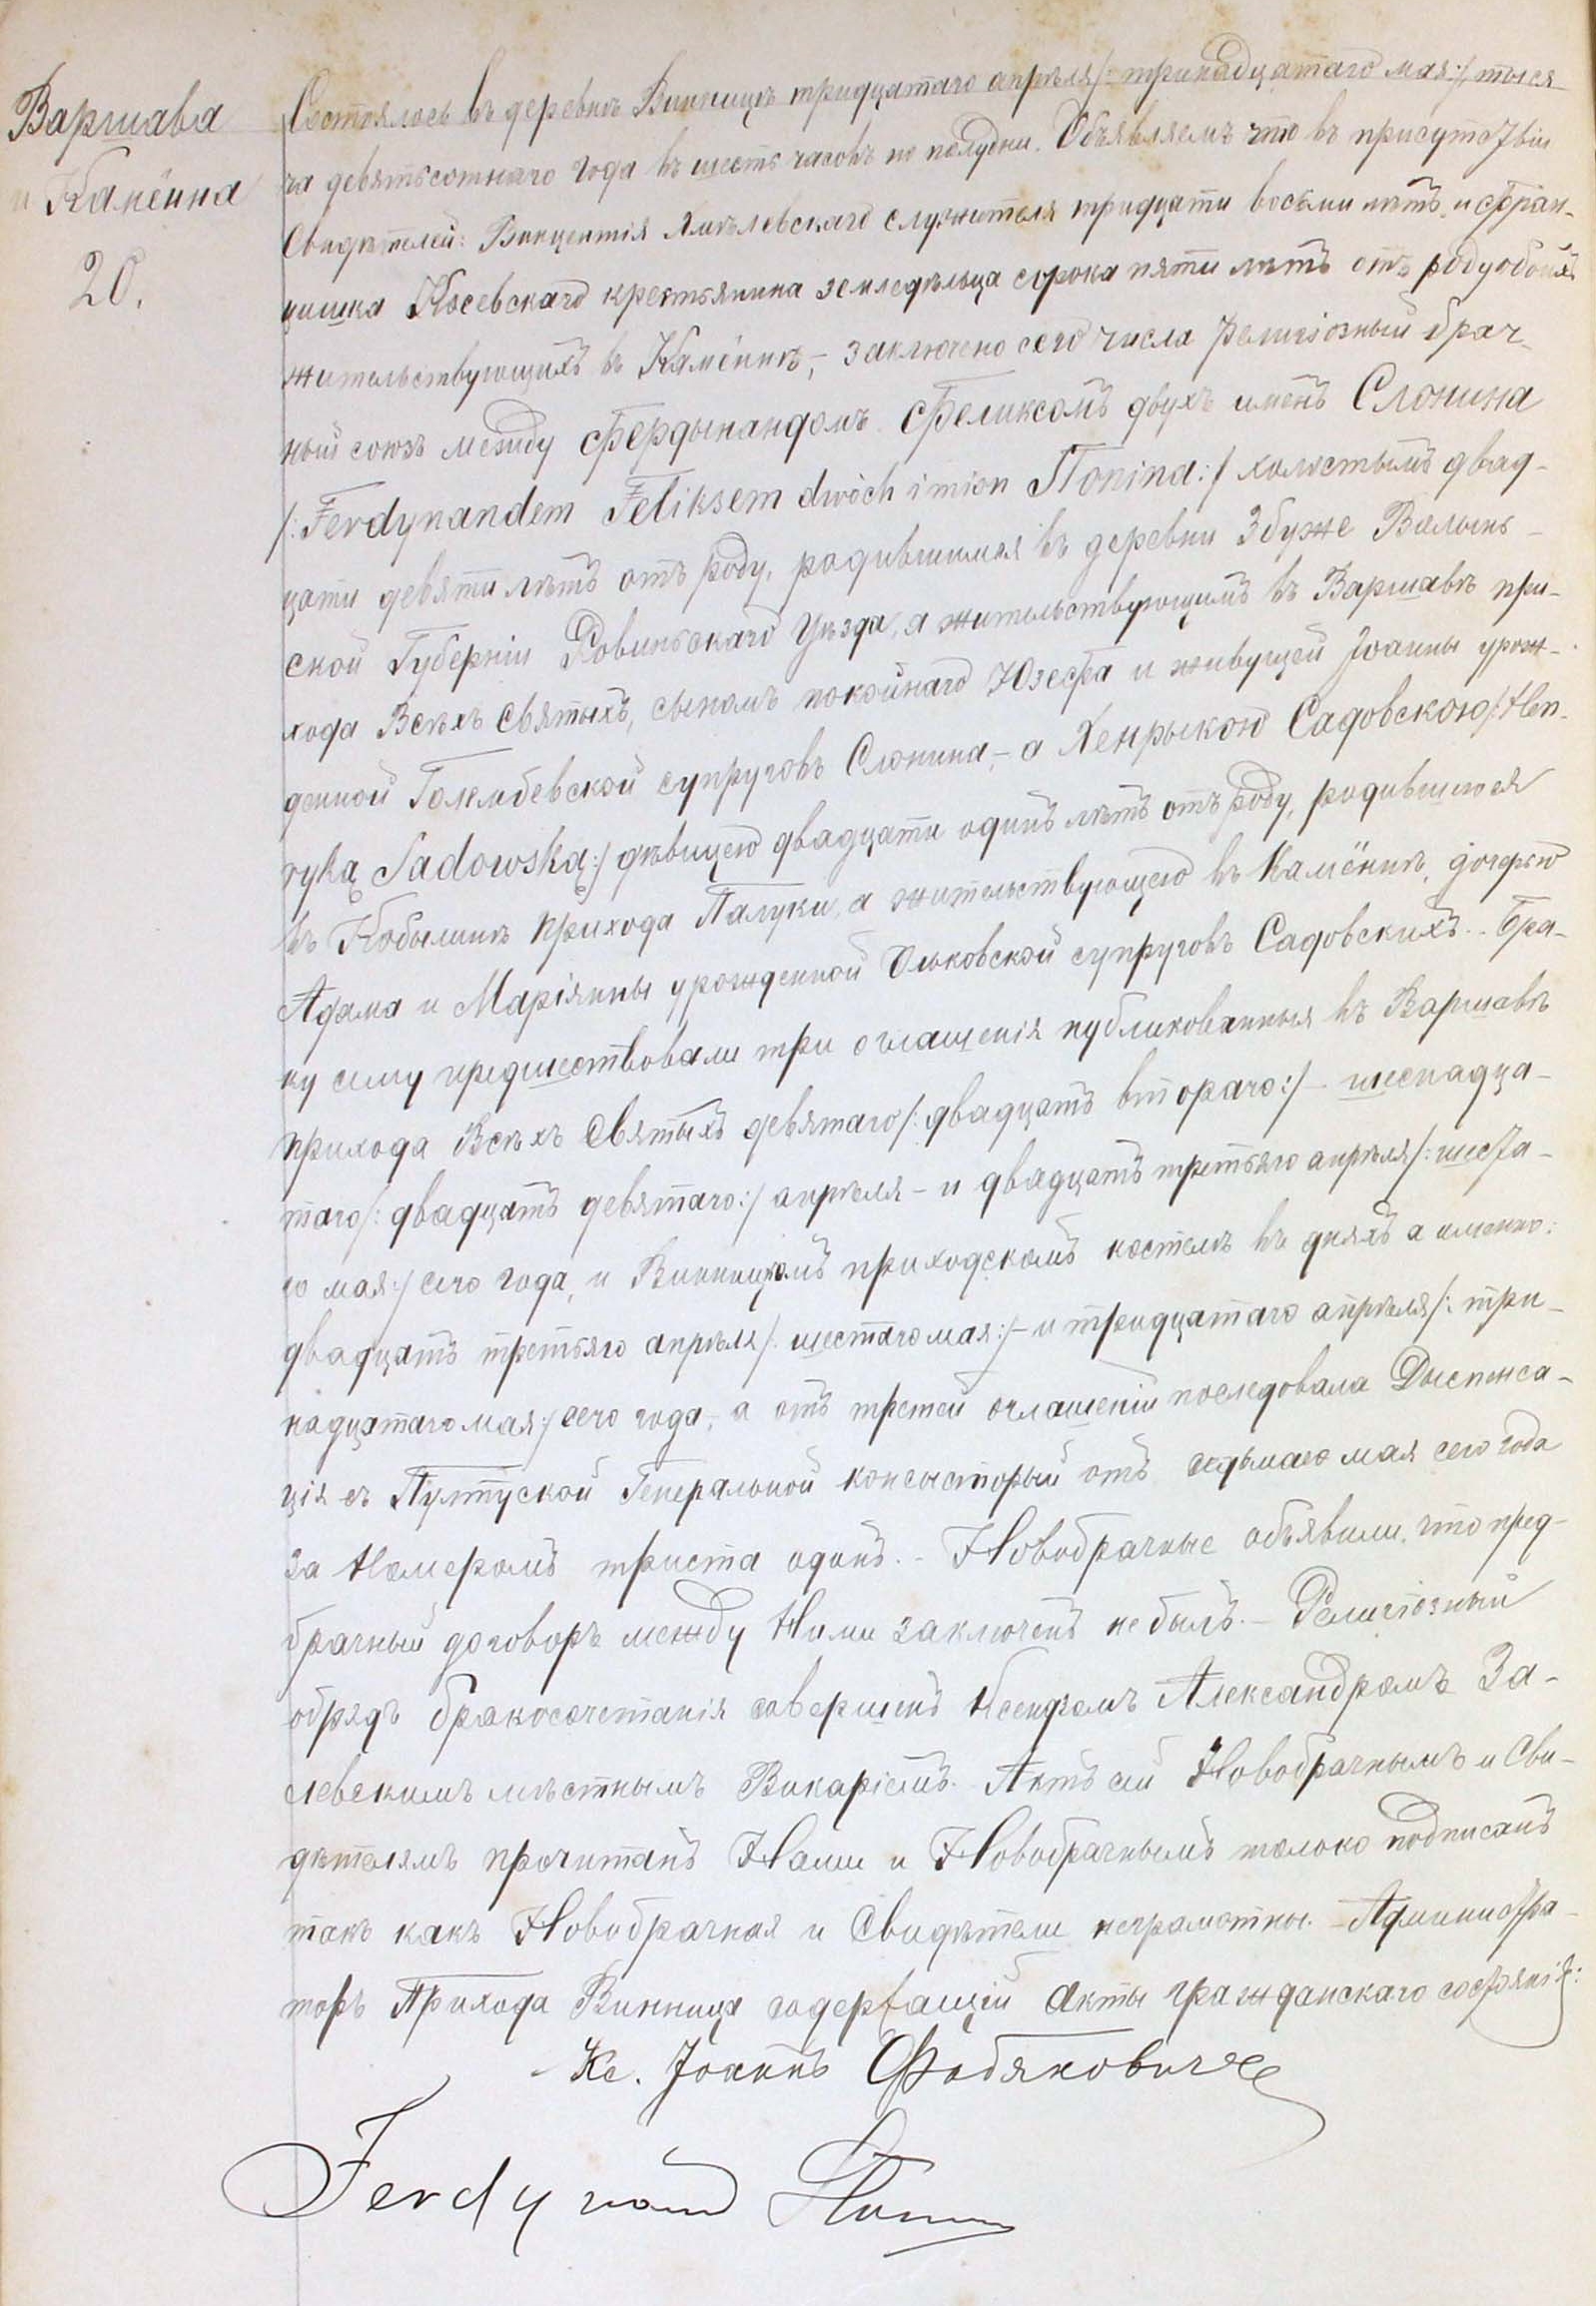 Варшава
и Камёнка
20.
Состоялось въ деревнѣ Винницѣ тридцатаго апрѣля /:тринадцатаго мая:/ тыся-
ча девятьсотнаго года въ шесть часовъ по полудни. Объявляемъ что въ присутствіи
Свидѣтелей: Винцентія служителя тридцати восьми лѣтъ, и Фран-
цишка Косевскаго крестьянина земледѣльца сорока пяти лѣтъ отъ роду обоихъ
жительствующихъ въ Камёнкѣ,- заключено сего числа религіозный брач-
ный союзъ между Фердынандомъ Феликсомъ двухъ имёнъ Слонина
/:Ferdynandem Feliksem dwóch imion Słonina:/ холостымъ двад-
цати девяти лѣтъ отъ роду, родившимся въ деревни Збуже Волынь-
ской Губерніи Ровиньскаго Уѣзда, а жительствующимъ въ Варшавѣ при-
хода Всѣхъ Святыхъ, сыномъ покойнаго Юзефа и живущей Іоанны урож-
денной Голембевской супруговъ Слонина,- а Хенрыкою Садовскою /:Hen-
ryką Sadowską:/ дѣвицею двадцати одинъ лѣтъ отъ роду, родившеюся
въ Кобылинѣ прихода Палуки, а жительствующею въ Камёнкѣ, дочерью
Адама и Маріянны урожденной Ольковской супруговъ Садовскихъ.- Бра-
ку сему предшествовали три оглашенія публикованныя въ Варшавѣ
прихода Всѣхъ Святыхъ девятаго /:двадцать втораго:/ - шеснадца-
таго /:двадцать девятаго:/ апрѣля - и двадцать третьяго апрѣля /:шеста-
го мая:/ сего года, и Винницкомъ приходскомъ костелѣ въ дняхъ а именно:
двадцать третьяго апрѣля /:шестаго мая:/ - и тридцатаго апрѣля /:три-
надцатаго мая:/ сего года,- а отъ третей оглашеніи последовала Дыспенса-
ція съ Пултуской Генеральной консысторый отъ седьмаго мая сего года
за Номеромъ триста одинъ.- Новобрачные объявили, что пред-
брачный договоръ между Ними заключенъ не былъ.- Религіозный
обрядъ бракосочетанія совершенъ Ксендзомъ Александромъ За-
левскимъ мѣстнымъ Викаріемъ. Актъ сей Новобрачнымъ и Сви-
дѣтелямъ прочитанъ Нами и Новобрачнымъ только подписанъ
такъ какъ Новобрачная и Свидѣтели неграмотны.- Администра-
торъ Прихода Винница содержащій Акты гражданскаго состоянія:
Кс. Іоаннъ
Ferdynand Słonina